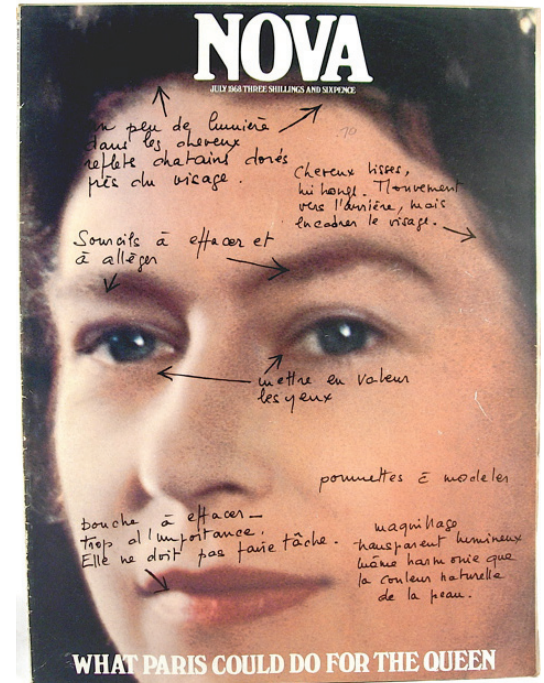 NOVA
JULY 1968 THREE SHILLINGS AND SIXPENCE
un peu de lumière
dans les cheveux
reflets chatains dorés
près du visage.
Cheveux lisses,
mi longs. Mouvement
vers l'arrière, mais
encadrer le visage.
Sourcils à effacer et
à alléger
mettre en valeur
les yeux
pommettes à modeler
bouche à effacer —
trop d'importance.
Elle ne doit pas faire tâche.
maquillage
transparent lumineux
même harmonie que
la couleur naturelle
de la peau.
WHAT PARIS COULD DO FOR THE QUEEN